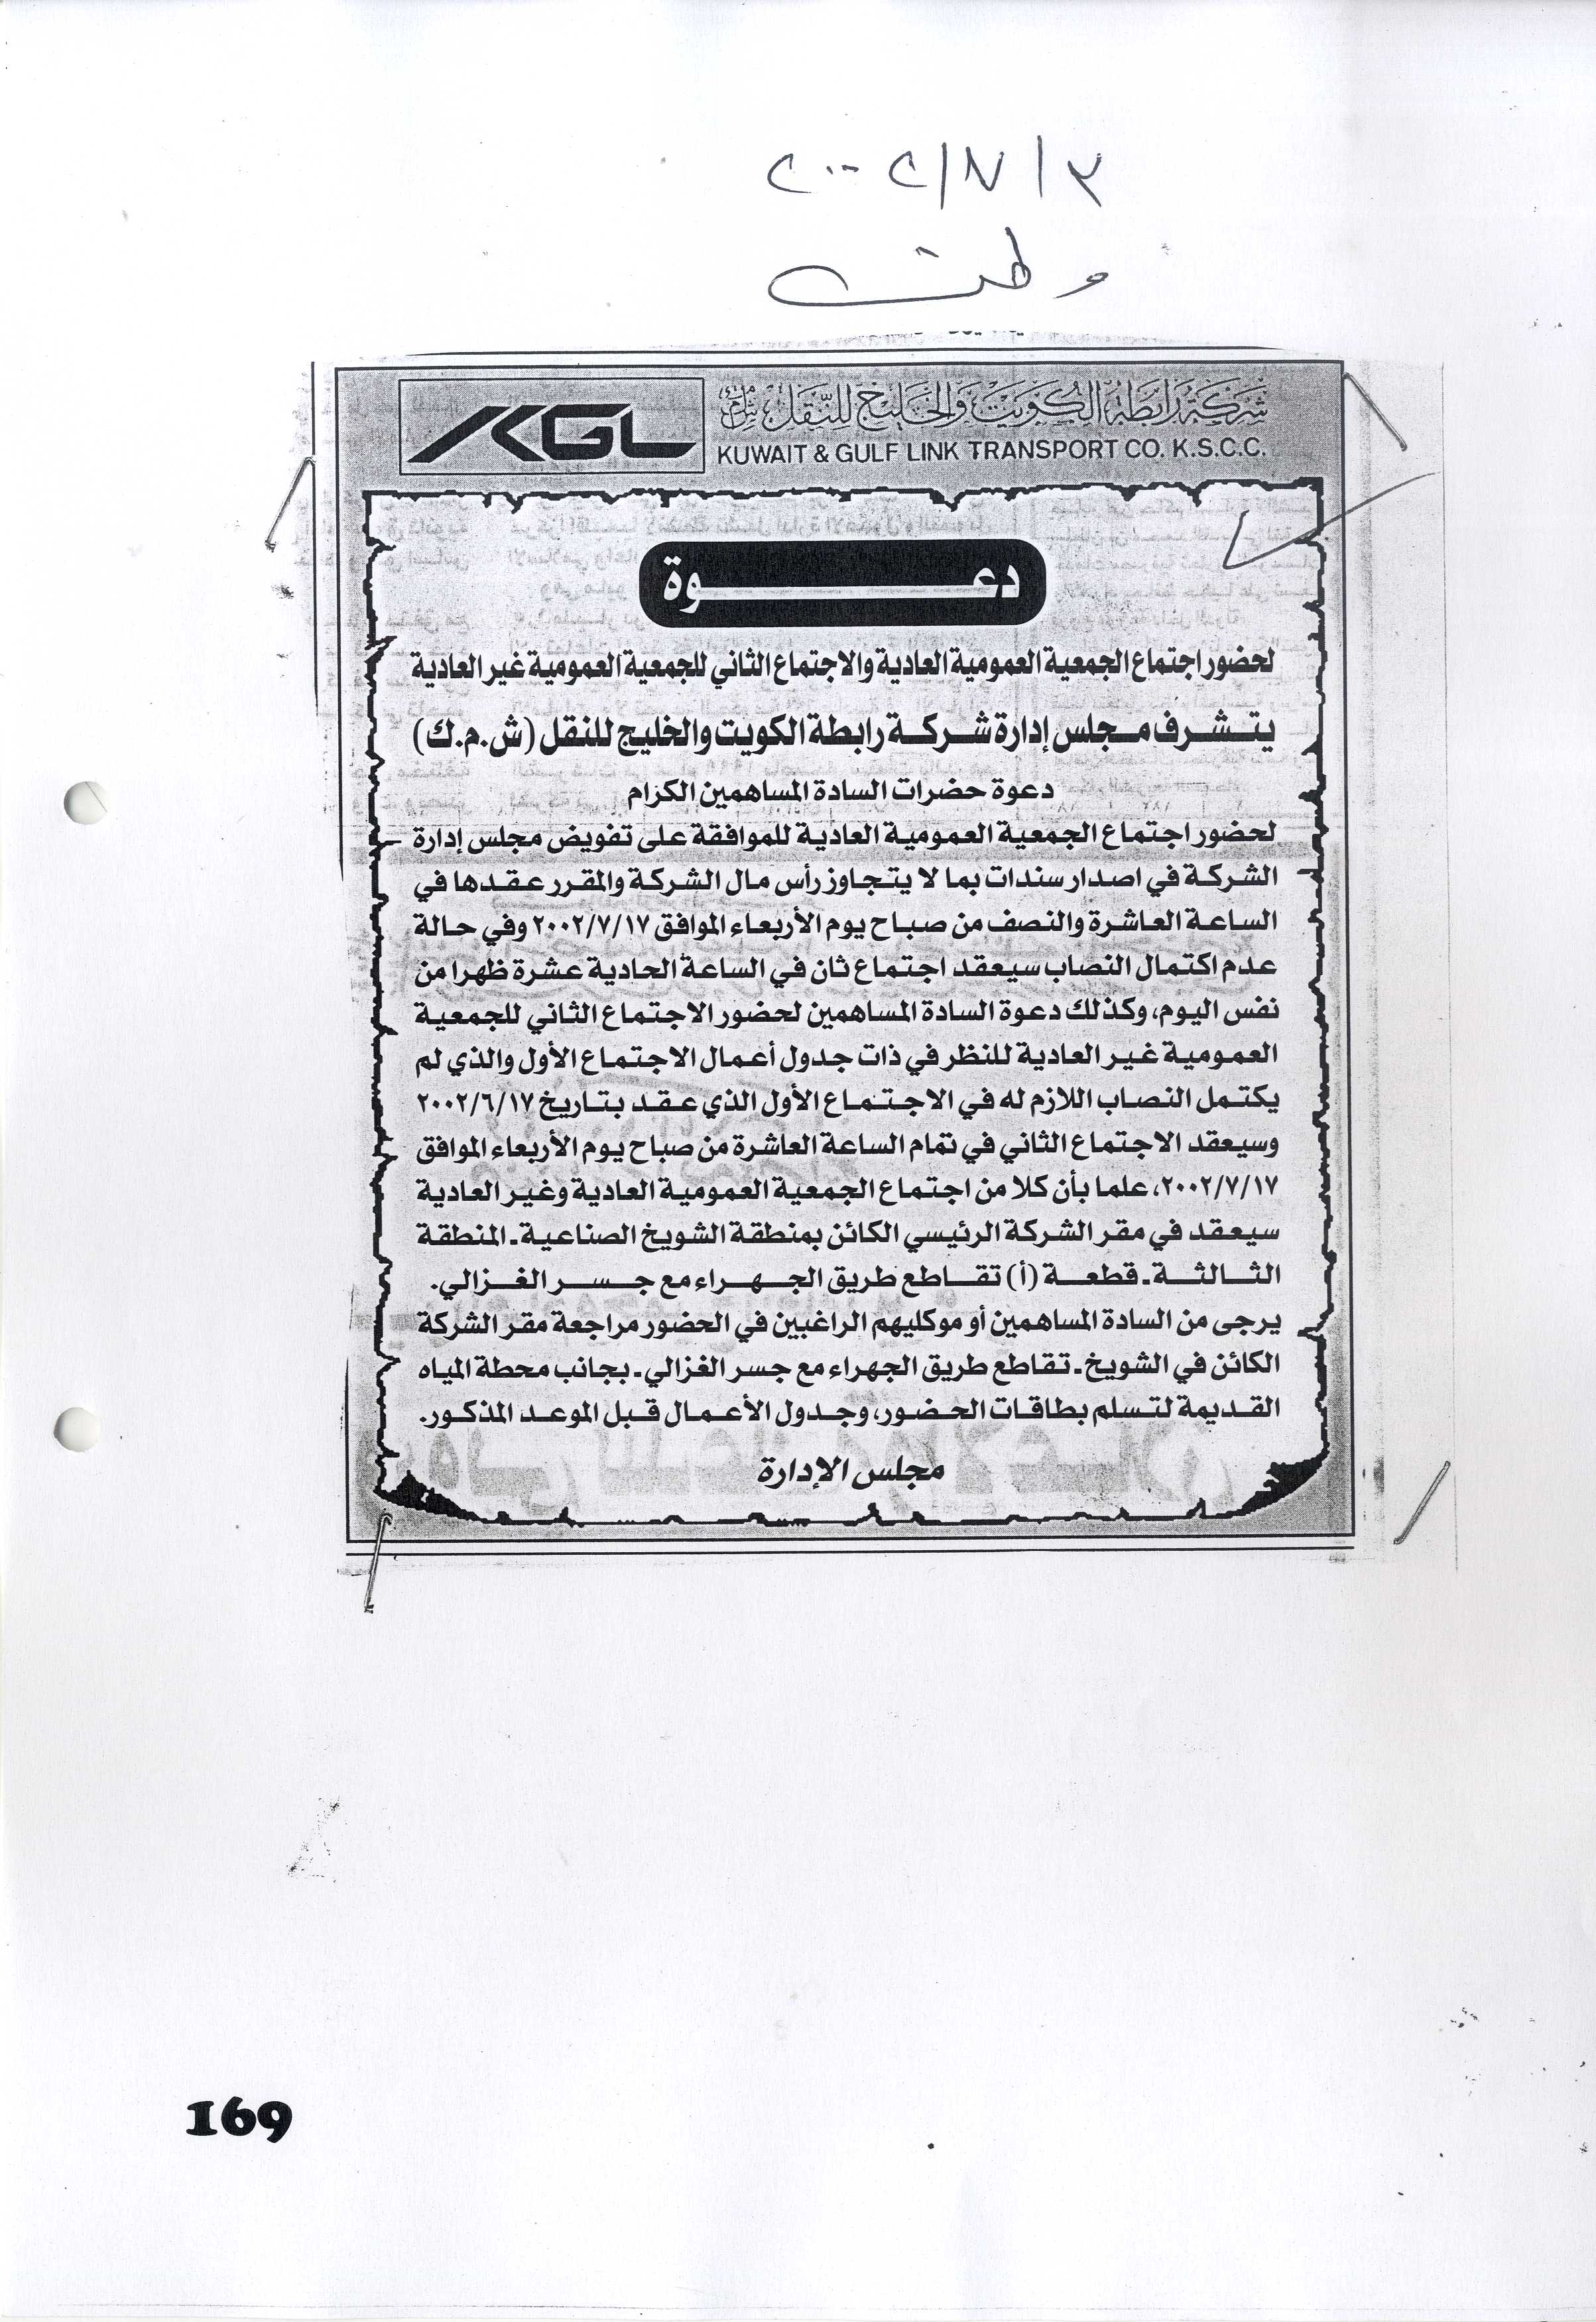 ٢٠٠٢/٧/٣
وطن
KGL
شركة رابطة الكويت والخليج للنقل ش.م.ك
KUWAIT & GULF LINK TRANSPORT CO. K.S.C.C.
دعوة
لحضور اجتماع الجمعية العمومية العادية والاجتماع الثاني للجمعية العمومية غير العادية
يتشرف مجلس إدارة شركة رابطة الكويت والخليج للنقل (ش.م.ك)
دعوة حضرات السادة المساهمين الكرام
لحضور اجتماع الجمعية العمومية العادية للموافقة على تفويض مجلس إدارة
الشركة في اصدار سندات بما لا يتجاوز رأس مال الشركة والمقرر عقدها في
الساعة العاشرة والنصف من صباح يوم الأربعاء الموافق ٢٠٠٢/٧/١٧ وفي حالة
عدم اكتمال النصاب سيعقد اجتماع ثان في الساعة الحادية عشرة ظهرا من
نفس اليوم، وكذلك دعوة السادة المساهمين لحضور الاجتماع الثاني للجمعية
العمومية غير العادية للنظر في ذات جدول أعمال الاجتماع الأول والذي لم
يكتمل النصاب اللازم له في الاجتماع الأول الذي عقد بتاريخ ٢٠٠٢/٦/١٧
وسيعقد الاجتماع الثاني في تمام الساعة العاشرة من صباح يوم الأربعاء الموافق
٢٠٠٢/٧/١٧، علما بأن كلا من اجتماع الجمعية العمومية العادية وغير العادية
سيعقد في مقر الشركة الرئيسي الكائن بمنطقة الشويخ الصناعية ـ المنطقة
الثالثة ـ قطعة (أ) تقاطع طريق الجهراء مع جسر الغزالي.
يرجى من السادة المساهمين أو موكليهم الراغبين في الحضور مراجعة مقر الشركة
الكائن في الشويخ ـ تقاطع طريق الجهراء مع جسر الغزالي ـ بجانب محطة المياه
القديمة لتسلم بطاقات الحضور، وجدول الأعمال قبل الموعد المذكور.
مجلس الإدارة
169